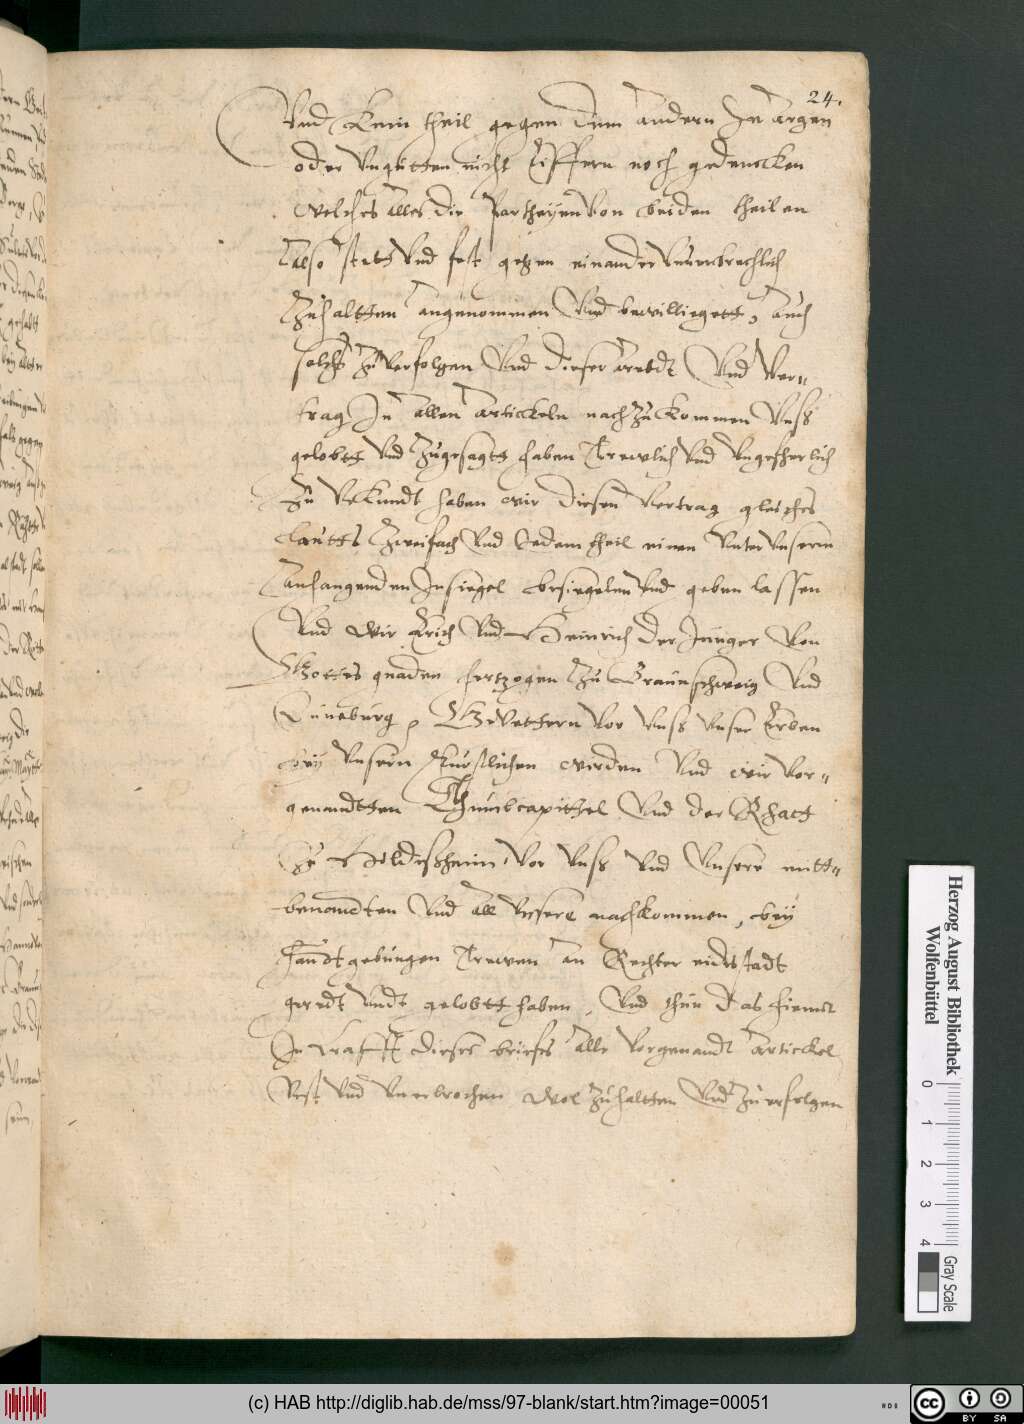 24.
Vnd Kein theil gegen dem andern In argen
oder Vngutten nicht Eiffern noch gedencken
welches alles die Partheyen Von beiden theilen
also stets Vnd fest gegen einander Vnuerbrechlich
Zuhaltten angenommen Vnd bewilliegett, auch
solchs zu Verfolgen Vnd dieser aredt Vnd Ver-
trag In allen artickeln nachZuKommen Vnss
gelobtt Vnd Zugesagtt haben Trewlich Vnd Vngefherlich
Zu Vrkundt haben wir diesen Vertrag gleiches
lautts Zweifach Vnd Jedem theil einen Vnter Vnserm
anhangenden Insiegel besiegelen Vnd geben lassen
Vnd wir Erich Vnd Heinrich der Junger Von
Gottes gnaden hertzogen Zu Braunschweig Vnd
Luneburg, Gevettern Vor Vnss Vnser Erben
bey Vnsern Furstlichen wirden Vnd wir Vor-
genandtten Thumbcapittel Vnd der Rhatt
Zu Hildessheim Vor Vnss Vnd Vnsere mitt-
benandten Vnd all Vnsere nachkommen, bey
handtgebungen Trewen an Rechter eidtstadt
geredt Vndt gelobtt haben, Vnd thun das hiemit
In Krafft dieses briefes alle Vorgenandt artickel
Vest Vnd Vnerbrochen wol Zuhaltten Vnd Zuerfolgen
Herzog August Bibliothek
Wolfenbüttel
0 1 2 3 4
Gray Scale
(c) HAB http://diglib.hab.de/mss/97-blank/start.htm?image=00051
cc BY SA